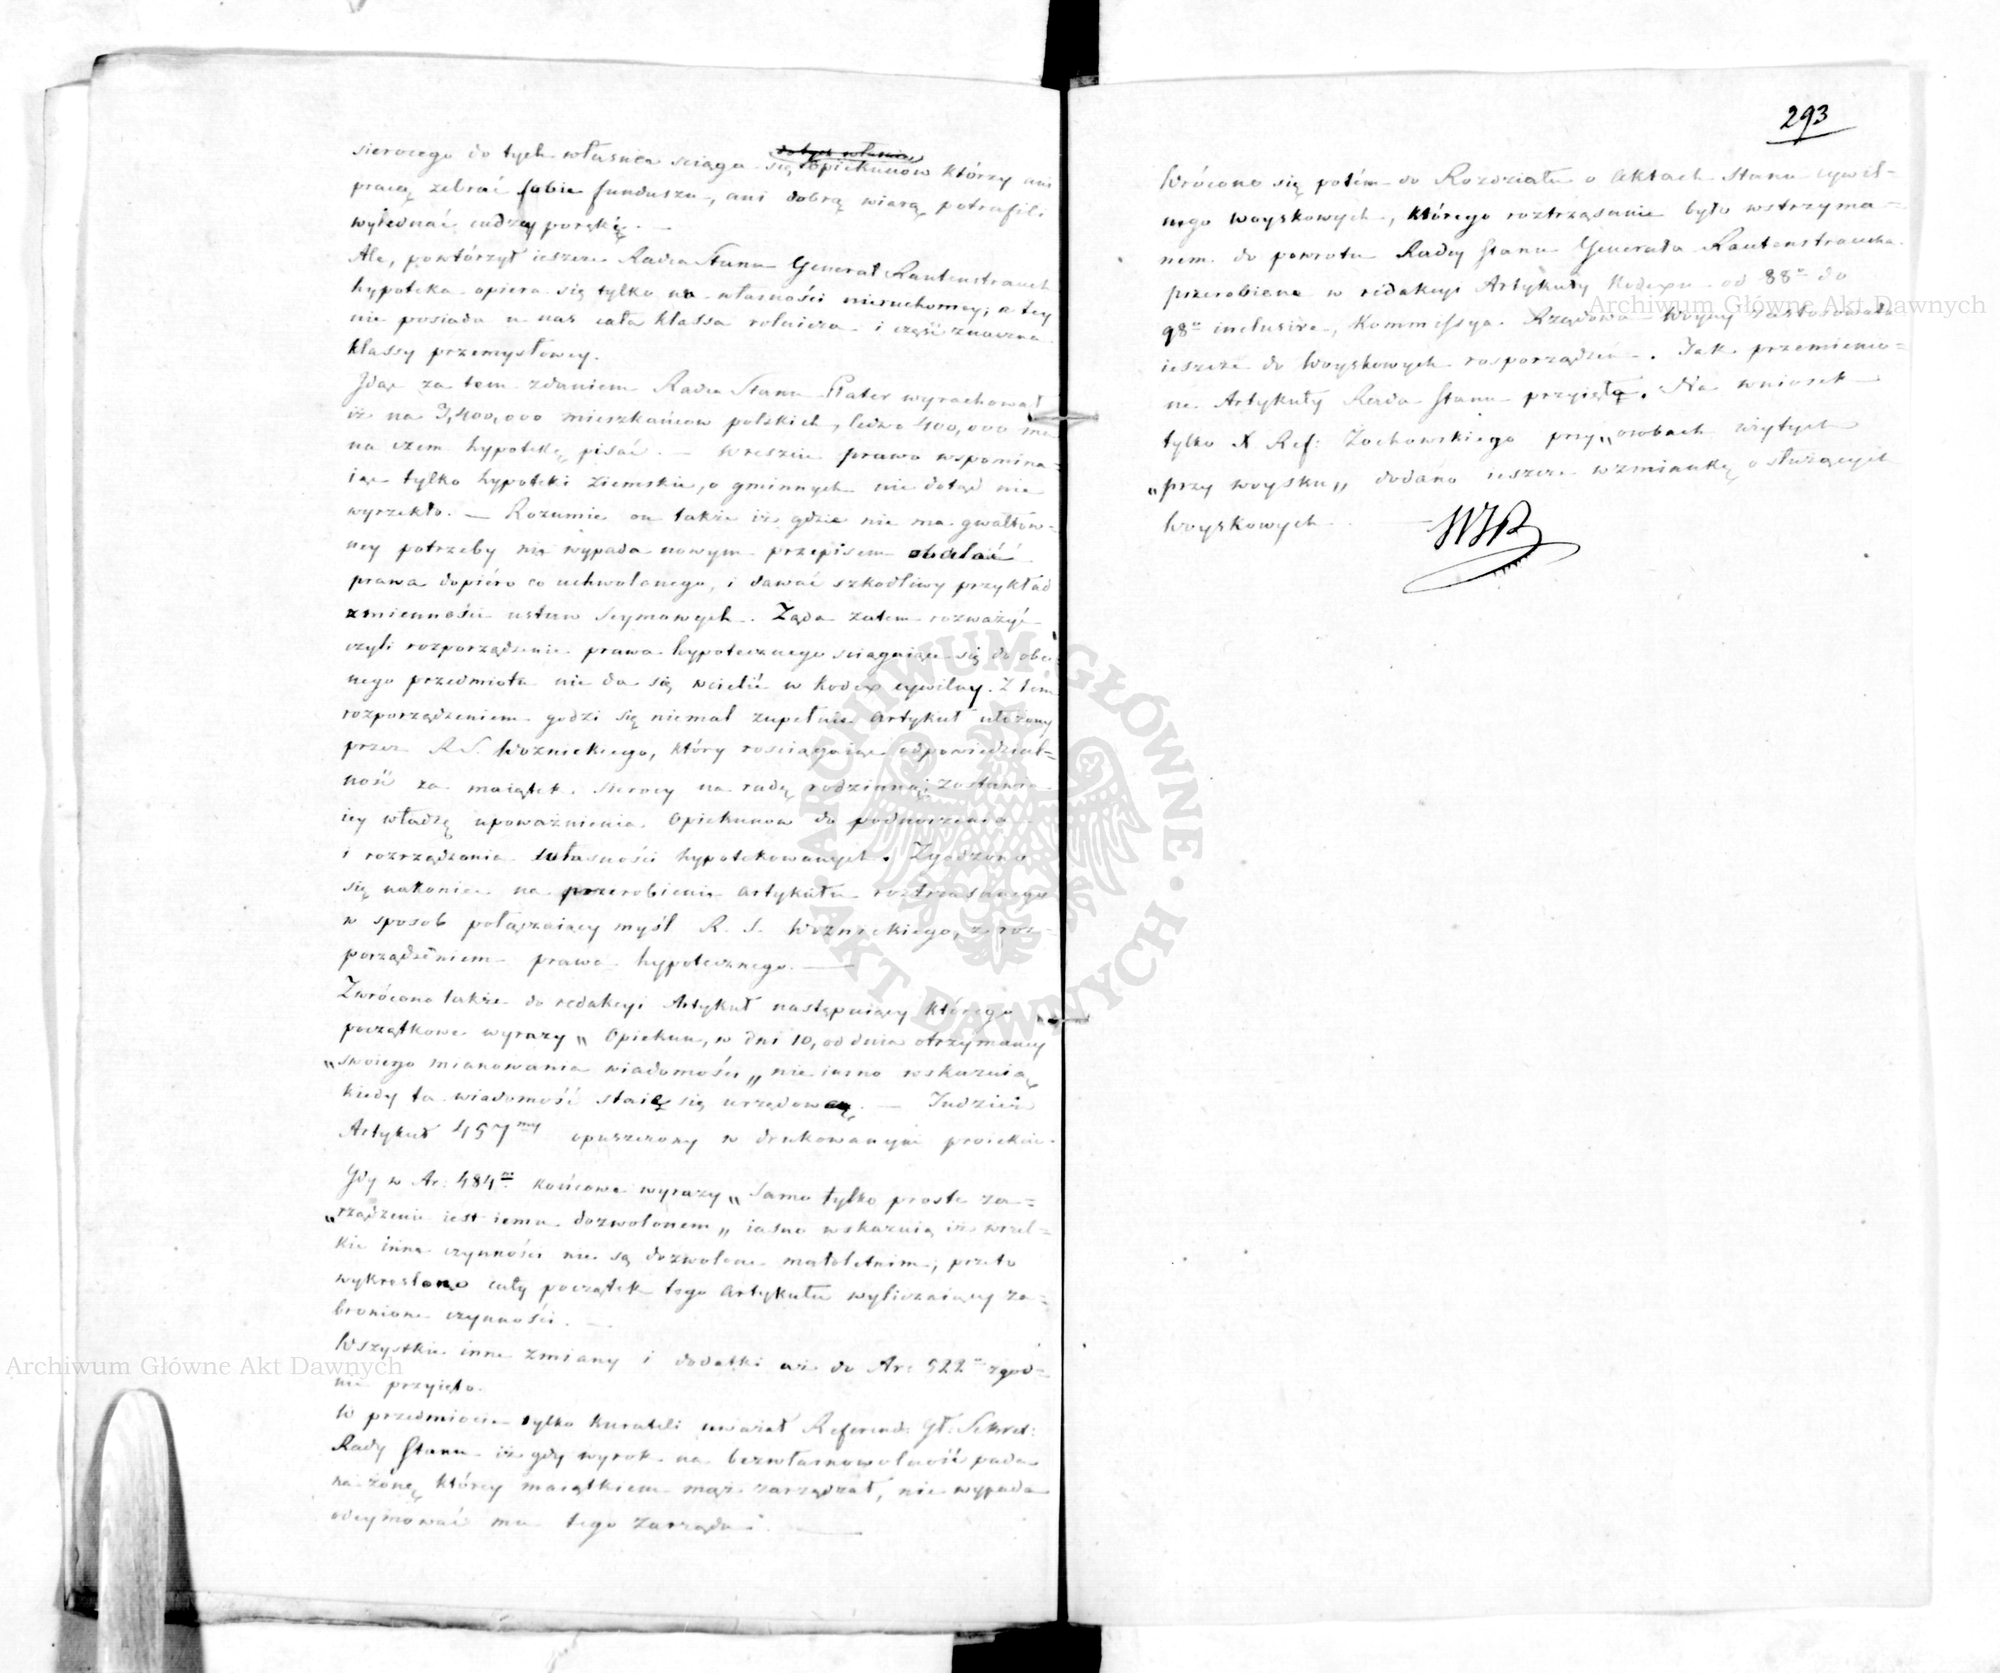 sierocego do tych własnéa sciąga się opiekunów którzy ani
pracą zebrać sobie funduszu, ani dobrą wiarą potrafili
wyiednać cudzey poręki. —
Ale, powtórzył ieszcze Radca Stanu Generał Rautenstrauch
hypoteka opiera się tylko na własności nieruchomey; a tey
nie posiada u nas cała klassa rolnicza i część znaczna
klassy przemysłowey.
Idąc za tem zdaniem Radca Stanu Plater wyrachował
iż na 3,400,000 mieszkańców polskich, ledwo 400,000 ma
na czem hypotekę pisać. — Wreszcie prawo wspomina=
iąc tylko hypoteki Ziemskie, o gminnych nic dotąd nie
wyrzekło. — Rozumie on także iż gdzie nie ma gwałtow=
ney potrzeby nie wypada nowym przepisem obalać
prawa dopiéro co uchwalonego, i dawać szkodliwy przykład
zmienności ustaw Seymowych. Żąda zatem rozważyć
czyli rozporządzenie prawa hypotecznego sciągaiące się do obe=
nego przedmiotu nie da się wcielić w kodex cywilny. Z tem
rozporządzeniem godzi się niemal zupełnie Artykuł ułożony
przez R S. Woznickiego, który rosciągaiąc odpowiedzial=
ność za maiątek sierocy na radę rodzinną; zostawia
iey władzę upoważnienia Opiekunów do podnoszenia
i rozrządzania własności hypotekowanych. Zgodzono
się nakoniec na przerobienie Artykułu roztrząsanego
w sposob połączaiący myśl R. S. Woznickiego, z roz=
porządzeniem prawa hypotecznego. —
Zwrócono także do redakcyi Artykuł następuiący którego
początkowe wyrazy „ Opiekun, w dni 10, od dnia otrzymaney
„swoiego mianowania wiadomości „ nie iasno wskazuią
kiedy ta wiadomość staie się urzędową. — Tudzież
Artykuł 457my opuszczony w drukowanym proiekcie.
Gdy w Ar: 484m końcowe wyrazy „ Samo tylko proste za=
„rządzenie iest iemu dozwolonem „ iasno wskazuią iż wszel=
kie inne czynności nie są dozwolone małoletnim; przeto
wykreslono cały początek tego Artykułu wyliczaiący za=
bronione czynności. —
Wszystkie inne zmiany i dodatki aż do Ar: 522° zgod=
nie przyięto.
W przedmiocie tylko kurateli uważał Referend: Gł: Sekret:
Rady Stanu iż gdy wyrok na bezwłasnowolność pada
na żonę, którey maiątkiem mąż zarządzał, nie wypada
odeymować mu tego zarządu. —
293
Wrócono się potém do Rozdziału o Aktach Stanu cywil=
nego Woyskowych, którego roztrząsanie było wstrzyma=
nem do powrotu Radcy Stanu Generała Rautenstraucha
przerobione w redakcyi Artykuły Kodexu od 88° do
98° inclusive, Kommissya Rządowa Woyny zastosowała
ieszcze do Woyskowych rosporządzeń. Tak przemienio=
ne Artykuły Rada Stanu przyięła. Na wniosek
tylko X Ref: Żochowskiego przy „osobach użytych
„przy woysku „ dodano ieszcze wzmiankę o służących
Woyskowych.
Archiwum Główne Akt Dawnych
Archiwum Główne Akt Dawnych
ARCHIWUM GŁÓWNE AKT DAWNYCH